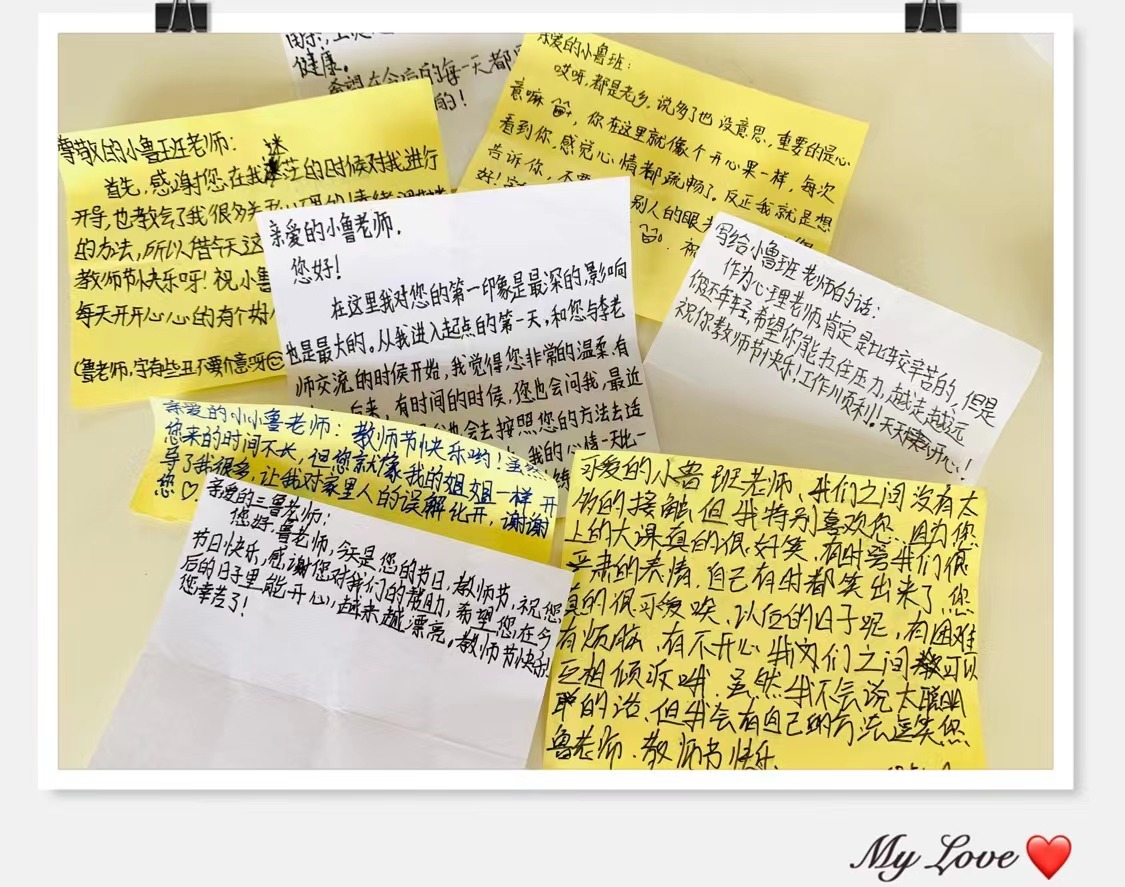 健康。
希望在今后的每一天都
的!
尊敬的小鲁班老师:
首先,感谢您在我迷茫的时候对我进行
开导,也教会了我很多关于心理的情绪调
的方法,所以借今天这
教师节快乐呀!祝小鲁
每天开开心心的有个好心
(鲁老师,字有些丑不要介意呀
亲爱的小鲁班:
哎呀,都是老乡,说多了也没意思,重要的是心
意嘛,你在这里就像个开心果一样,每次
看到你,感觉心情都疏畅了。反正我就是想
告诉你,不要
好!
别人的眼光
祝
亲爱的小鲁老师.
您好!
在这里我对您的第一印象是最深的,影响
也是最大的。从我进入起点的第一天,和您与李老
师交流的时侯开始,我觉得您非常的温柔.有
后来,有时间的时候,您也会问我,最近
也会去按照您的方法去适
我的心情一天比一
练
写给小鲁班老师的话:
作为心理老师,肯定是比较辛苦的,但是
你还年轻,希望你能抗住压力,越走越远
祝你教师节快乐!工作顺利。天天开心!
亲爱的小小鲁老师:教师节快乐哟!虽然
您来的时间不长,但您就像我的姐姐一样,开
导了我很多,让我对家里人的误解化开,谢谢
您♡
亲爱的三鲁老师:
您好,鲁老师,今天是您的节日,教师节,祝您
节日快乐,感谢您对我们的帮助,希望您在今
后的日子里能开心,越来越漂亮。教师节快乐
您幸苦了!
可爱的小鲁班老师,我们之间没有太
多的接触但我特别喜欢您.因为您
上的大课真的很好笑.有时骂我们很
严肃的表情.自己有时都笑出来了.您
真的很可爱唉.以后的日子呢,有困难
有烦脑、有不开心我们之间都可以
互相倾诉哦.虽然我不会说太聪明
的话、但我会有自己的方法逗笑您
鲁老师.教师节快乐
My Love ❤